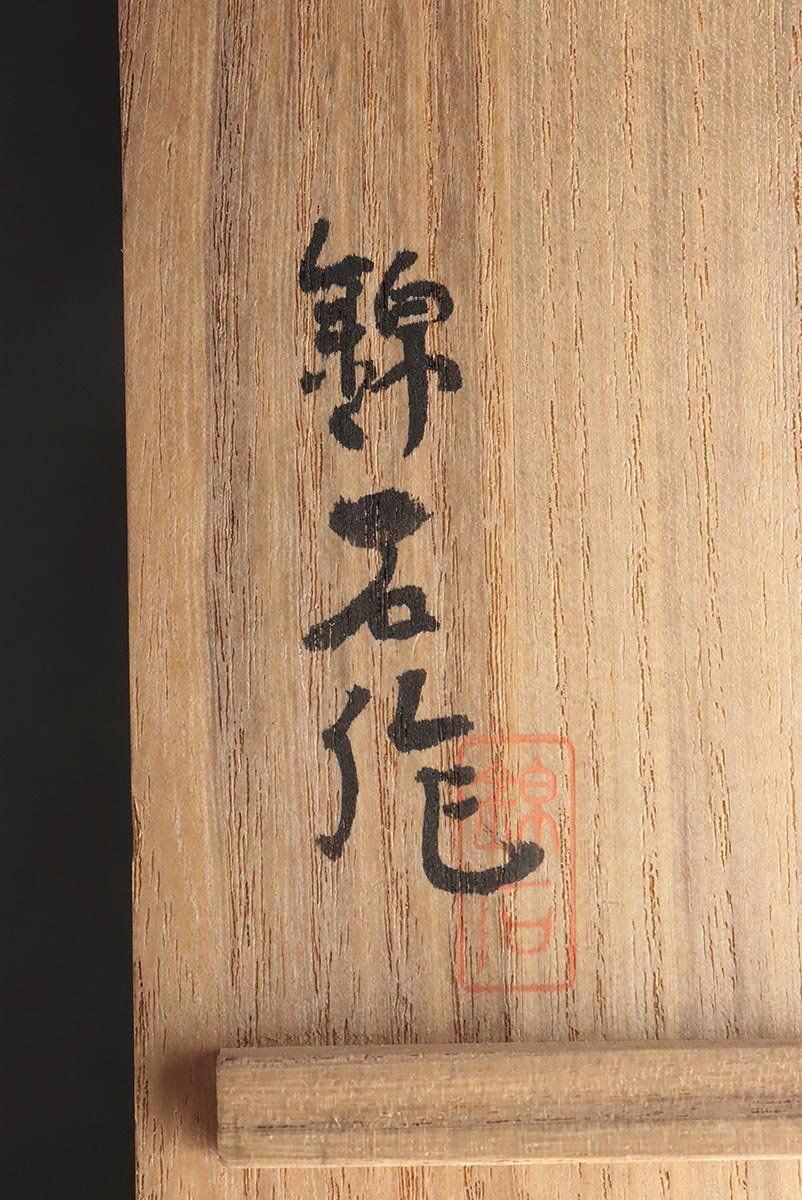 錦石作
錦石